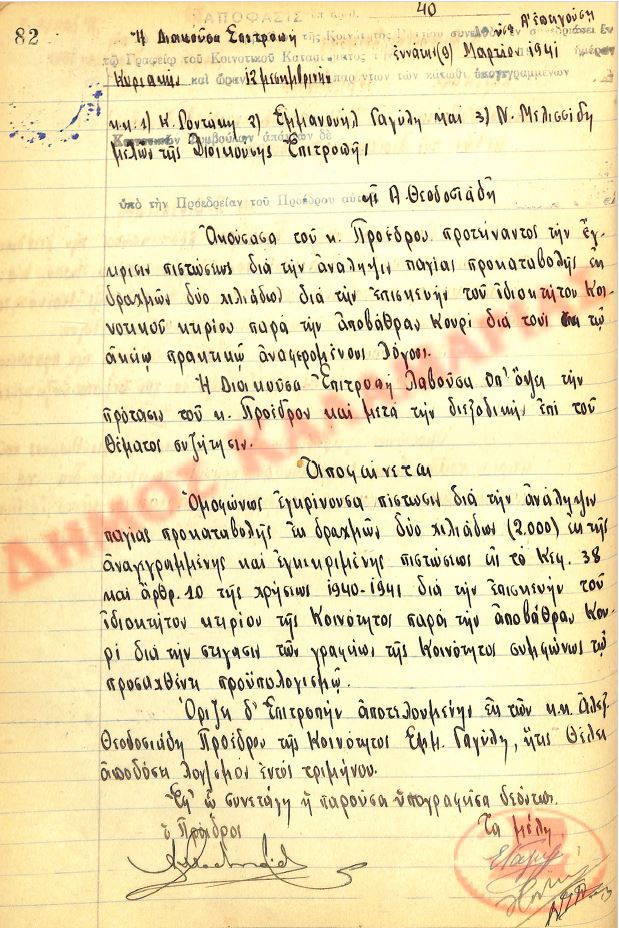 82
ΑΠΟΦΑΣΙΣ 40
Ἡ Διοικοῦσα Ἐπιτροπὴ τῆς Κοινότητος
ἐννάτην (9) Μαρτίου 1941
τῷ Γραφείῳ τοῦ Κοινοτικοῦ Καταστήματος ἡμέραν
Κυριακὴν καὶ ὥραν 12 μεσημβρινὴν παρόντων τῶν κάτωθι ὑπογεγραμμένων
κ.κ. 1) Κ. Ροντάκη 2) Ἐμμανουὴλ Γαγύλη καὶ 3) Ν. Μελισσίδη
μελῶν τῆς Διοικούσης Ἐπιτροπῆς
ὑπὸ τὴν Προεδρείαν τοῦ Προέδρου αὐτῆς Α. Θεοδοσιάδη
Ἀκούσασα τοῦ κ. Προέδρου προτείναντος τὴν ἔγ-
κρισιν πιστώσεως διὰ τὴν ἀνάληψιν παγίας προκαταβολῆς ἐκ
δραχμῶν δύο χιλιάδων διὰ τὴν ἐπισκευὴν τοῦ ἰδιοκτήτου Κοι-
νοτικοῦ κτιρίου παρὰ τὴν ἀποβάθραν Κουρὶ διὰ τοὺς ἐν τῷ
πρακτικῷ ἀναφερομένους λόγους.
Ἡ Διοικοῦσα Ἐπιτροπὴ λαβοῦσα ὑπ' ὄψει τὴν
πρότασιν τοῦ κ. Προέδρου καὶ μετὰ τὴν διεξοδικὴν ἐπὶ τοῦ
θέματος συζήτησιν.
Ἀποφαίνεται
Ὁμοφώνως ἐγκρίνουσα πίστωσιν διὰ τὴν ἀνάληψιν
παγίας προκαταβολῆς ἐκ δραχμῶν δύο χιλιάδων (2.000) ἐκ τῆς
ἀναγεγραμμένης καὶ ἐγκεκριμένης πιστώσεως εἰς τὸ Κεφ. 38
καὶ ἄρθρ. 10 τῆς χρήσεως 1940-1941 διὰ τὴν ἐπισκευὴν τοῦ
ἰδιοκτήτου κτιρίου τῆς Κοινότητος παρὰ τὴν ἀποβάθραν Κου-
ρὶ διὰ τὴν στέγασιν τῶν γραφείων τῆς Κοινότητος συμφώνως τῷ
προσαχθέντι προϋπολογισμῷ.
Ὁρίζει δ' Ἐπιτροπὴν ἀποτελουμένην ἐκ τῶν κ.κ. Ἀλεξ.
Θεοδοσιάδη Προέδρου τῆς Κοινότητος Ἐμμ. Γαγύλη, ἥτις θέλει
ἀποδόσει λογ/σμον ἐντὸς τριμήνου.
Ἐφ' ᾧ συνετάγη ἡ παροῦσα ὑπογραφεῖσα δεόντως.
ὁ Πρόεδρος Τὰ μέλη
ΔΗΜΟΣ ΚΑΛΑΜΑΡΙΑΣ